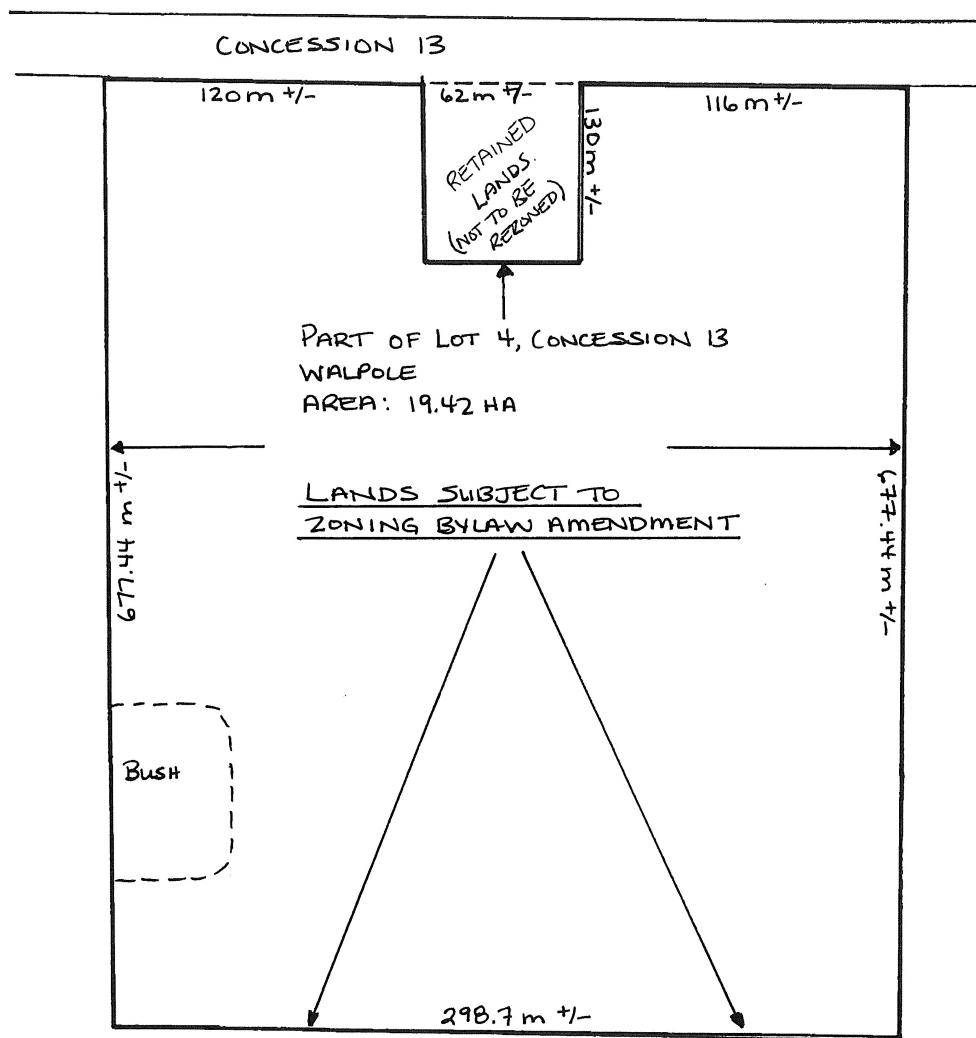 CONCESSION 13
120 m +/-
62 m +/-
116 m +/-
130 m +/-
RETAINED
LANDS.
(NOT TO BE
REZONED)
PART OF LOT 4, CONCESSION 13
WALPOLE
AREA: 19.42 HA
677.44 m +/-
677.44 m +/-
LANDS SUBJECT TO
ZONING BYLAW AMENDMENT
BUSH
298.7 m +/-